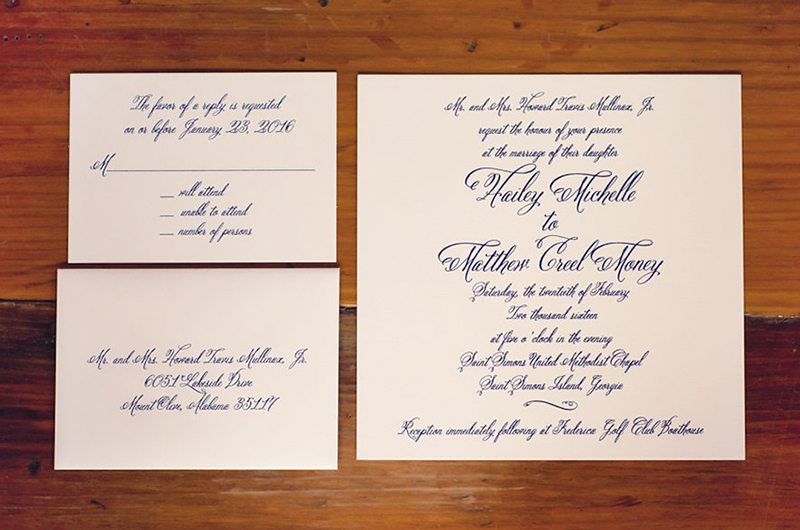 The favor of a reply is requested
on or before January 23, 2016
M
will attend
unable to attend
number of persons
Mr. and Mrs. Howard Travis Mullinax, Jr.
6051 Lakeside Drive
Mount Olive, Alabama 35117
Mr. and Mrs. Howard Travis Mullinax, Jr.
request the honour of your presence
at the marriage of their daughter
Hailey Michelle
to
Matthew Creel Money
Saturday, the twentieth of February
Two thousand sixteen
at five o'clock in the evening
Saint Simons United Methodist Chapel
Saint Simons Island, Georgia
Reception immediately following at Frederica Golf Club Boathouse